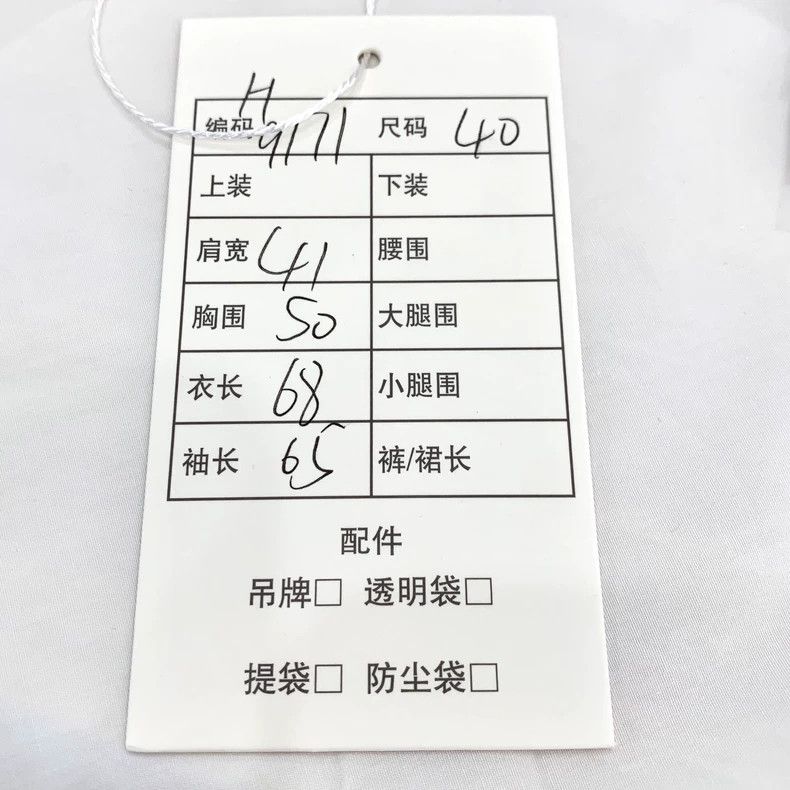 编码 H9171 尺码 40
上装 下装
肩宽 41 腰围
胸围 50 大腿围
衣长 68 小腿围
袖长 65 裤/裙长
配件
吊牌□ 透明袋□
提袋□ 防尘袋□